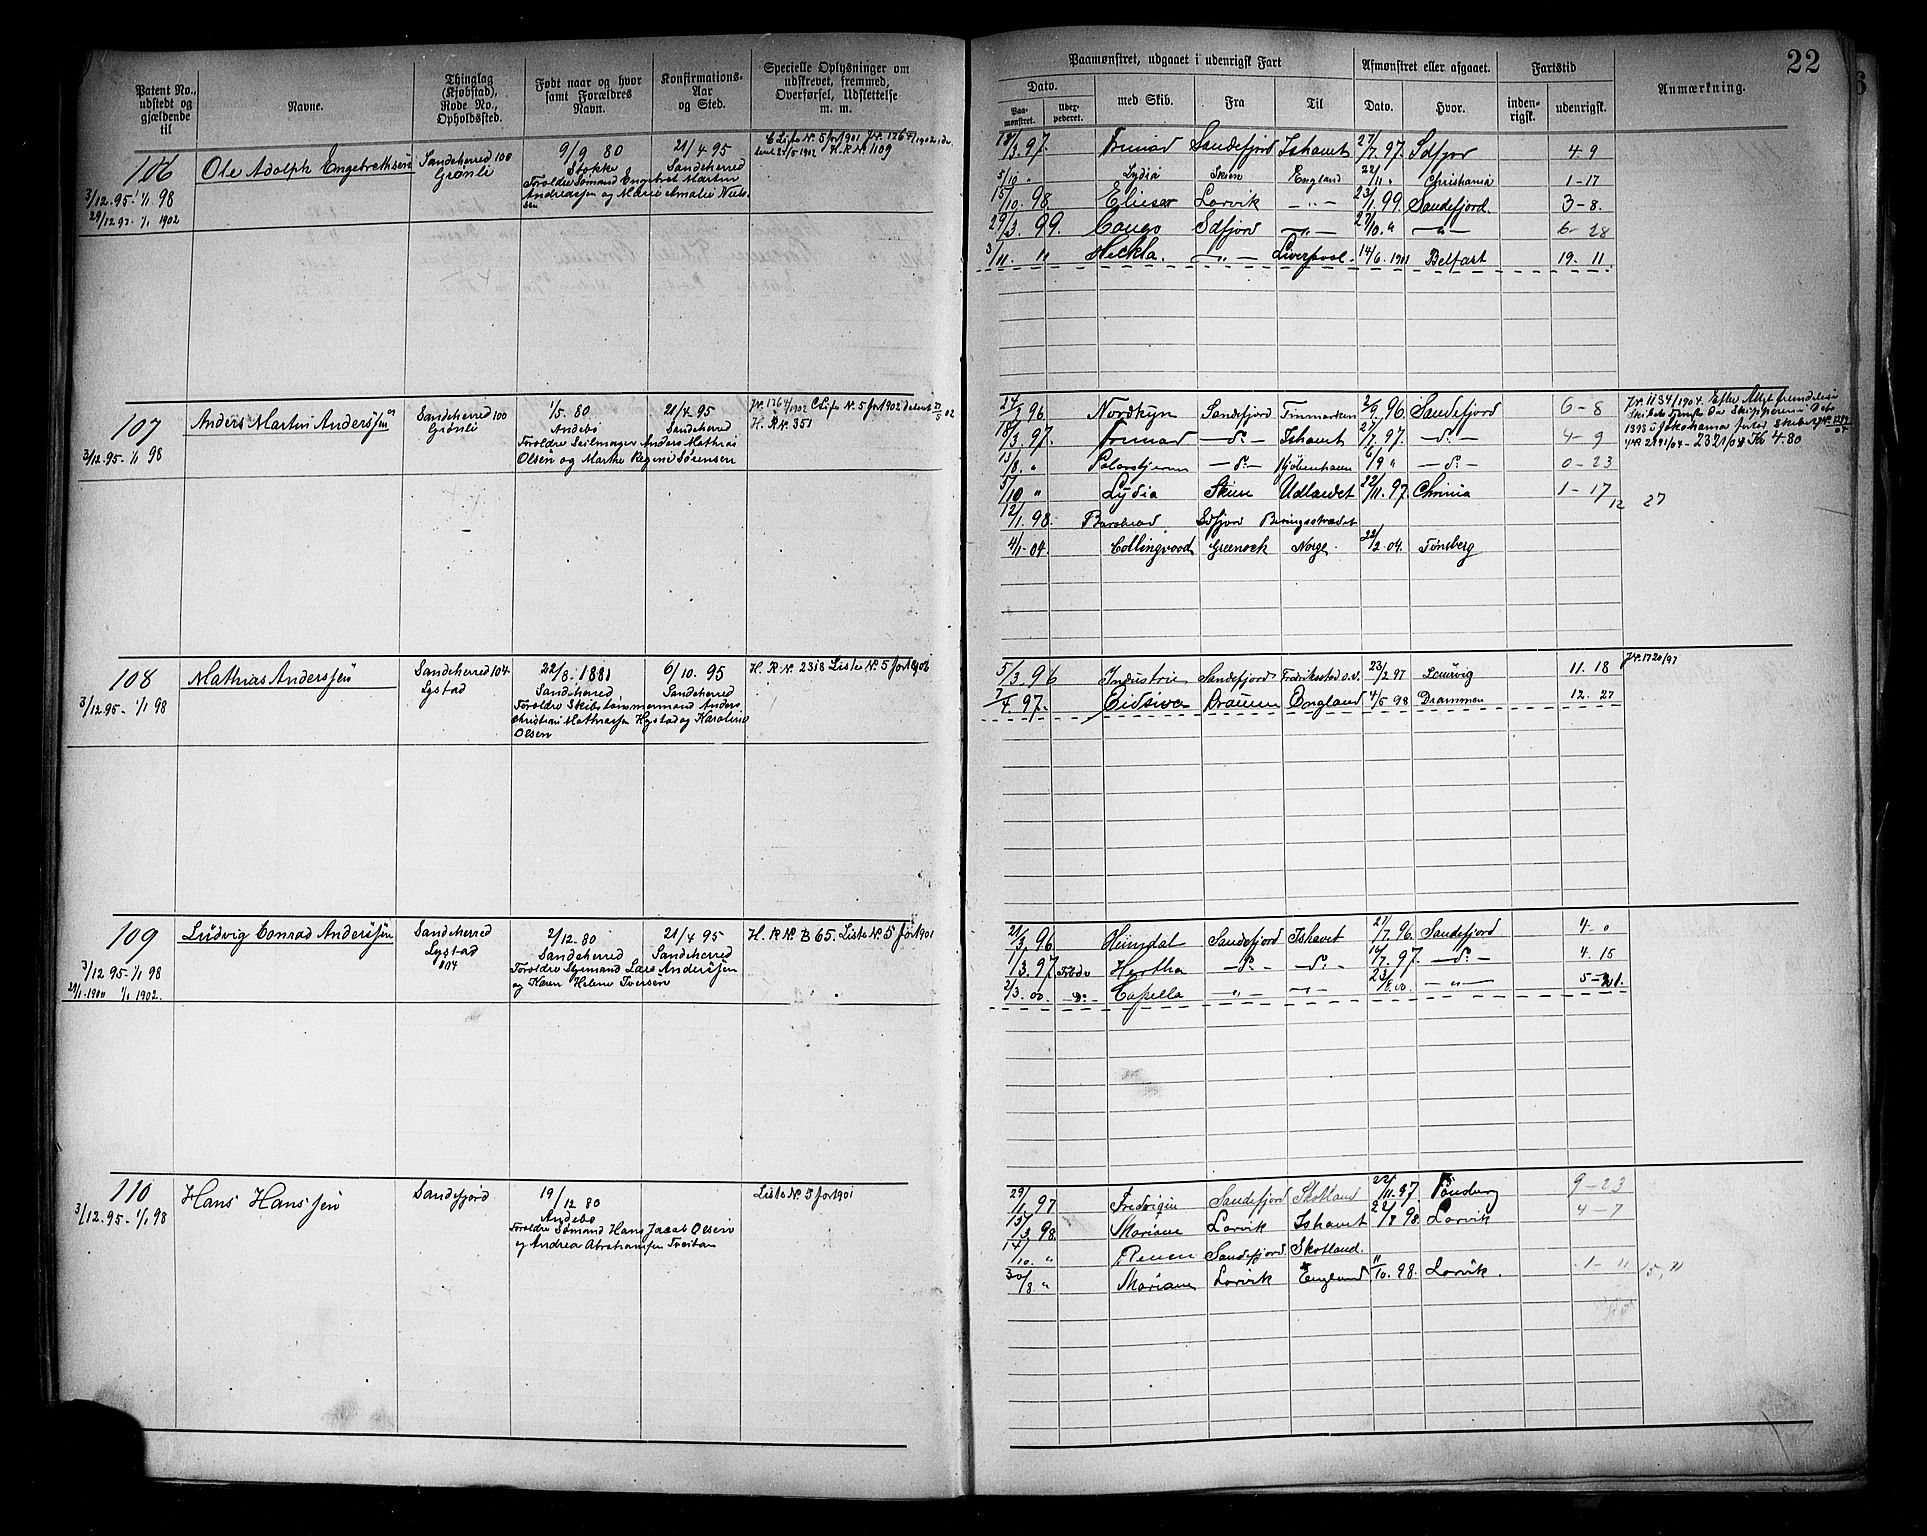 Patent No., udstedt og gjældende til
Navne.
Thinglag (Kjøbstad), Rode No., Opholdssted.
Født naar og hvor samt Forældres Navn.
Konfirmations-Aar og Sted.
Specielle Oplysninger om udskrevet, fremmed, Overførsel, Udslettelse m. m.
106
3/12.95 - 1/1 98
29/12 97. 1/1 1902
Ole Adolph Engebrethsen
Sandeherred 100
Grønli
9/9 80
Stokke
Foreldre Sømand Engebret Martin
Andreassen og Marie Amalie Niel-
sen
21/4 95
Sandeherred
C Liste N. 5 for 1901 JN. 1264/1902
25/5 1902 H.R.N. 1109
107
3/12.95 - 1/1 98
Anders Martin Anderssen
Sandeherred 100
Grønli
1/5. 80
Andebo
Foreldre Seilmager Anders Mathias
Olsen og Marthe Regine Sørensen
21/4 95
Sandeherred
JN. 1264/1902 C Liste N. 5 for 1902
H. R N. 351
108
3/12.95 - 1/1 98
Mathias Anderssen
Sandeherred 104
Lystad
22/8. 1881
Sandeherred,
Foreldre Skibstømmermand Anders
Christian Mathiassen Hystad og Karoline
Olsen
6/10. 95
Sandeherred
H. R N. 2318 Liste N. 5 for 1903
109
3/12 95 - 1/1 98
29/1.1900 1/1 1902.
Ludvig Conrad Anderssen
Sandeherred
Lystad
104
2/12-80
Sandeherred
Foreldre Styrmand Lars Anderssen
og Karen Helene Iversen
21/4 95
Sandeherred
H. R N. B 65. Liste N. 5 for 1901
110
3/12.95 - 1/1 98
Hans Hanssen
Sandefjord
19/12 80
Andebo
Foreldre Sømand Hans Jacob Olsen
og Andrea Abrahamsen Treitan
Liste N. 5 for 1901
22
Paamønstret, udgaaet i udenrigsk Fart
Afmønstret eller afgaaet.
Fartstid
Anmærkning.
Dato.
Paa-mønstret.
Uder-pederet.
med Skib.
Fra
Til
Dato.
Hvor.
inden-rigsk.
udenrigsk.
18/3.97. Trinad Sandefjord Ishavet 27/7.97. Sdfjor 4-9
5/10 " Lydia Skien England 22/11 " Christiania 1-17
15/10.98. Elieser Larvik -"- 23/1.99. Sandefjord. 3-8.
29/3.99. Congo Sdfjord -"- 27/10." -"- 6-28
3/11. " Heckla. -"- Liverpool. 14/6.1901 Belfast 19. 11
24/2 96. Nordkyn Sandefjord Finmarken 2/9.96. Sandefjord 6-8
18/3.97. Trinad -d°- Ishavet 27/7.97. -d°- 4-9
13/8. " Polarstjernen -d°- Kjøbenhavn 6/9 " -d°- 0-23
5/10 " Lydia Skien Udlandet 22/11.97. Chrinia 1-17
12 27
12/1.98. Sdfjord Beringsstrædet
4/1-04 Collingwood Greenock Norge. 22/2 04. Tønsberg
JN. 1134/1904.
2321/04 Kr 4.80
5/3.96 Industrie Sandefjord Fredriksstad o.s. 23/2 97 11. 18
JN. 1720/97
2/4.97. Eidsiva Drammen England 4/5 98 Drammen 12. 27
21/3.96 Heimdal Sandefjord Ishavet 21/7.96. Sandefjord 4-0
1/3.97 Hertha -d°- -d°- 14/7.97. -d°- 4.15
2/3.00 -D°- Capella -"- -"- 23/8.00. -"- 5-21.
29/1.97 Fredrigin Sandefjord Skotland 22/11.97. Tønsberg 9-23
15/3.98. Mariane Larvik Ishavet 22/8 98. Larvik 4-7
14/10. " Renen Sandefjord Skotland.
30/8. " Mariane Larvik England "/10.98. Larvik. 1-11
15, 11